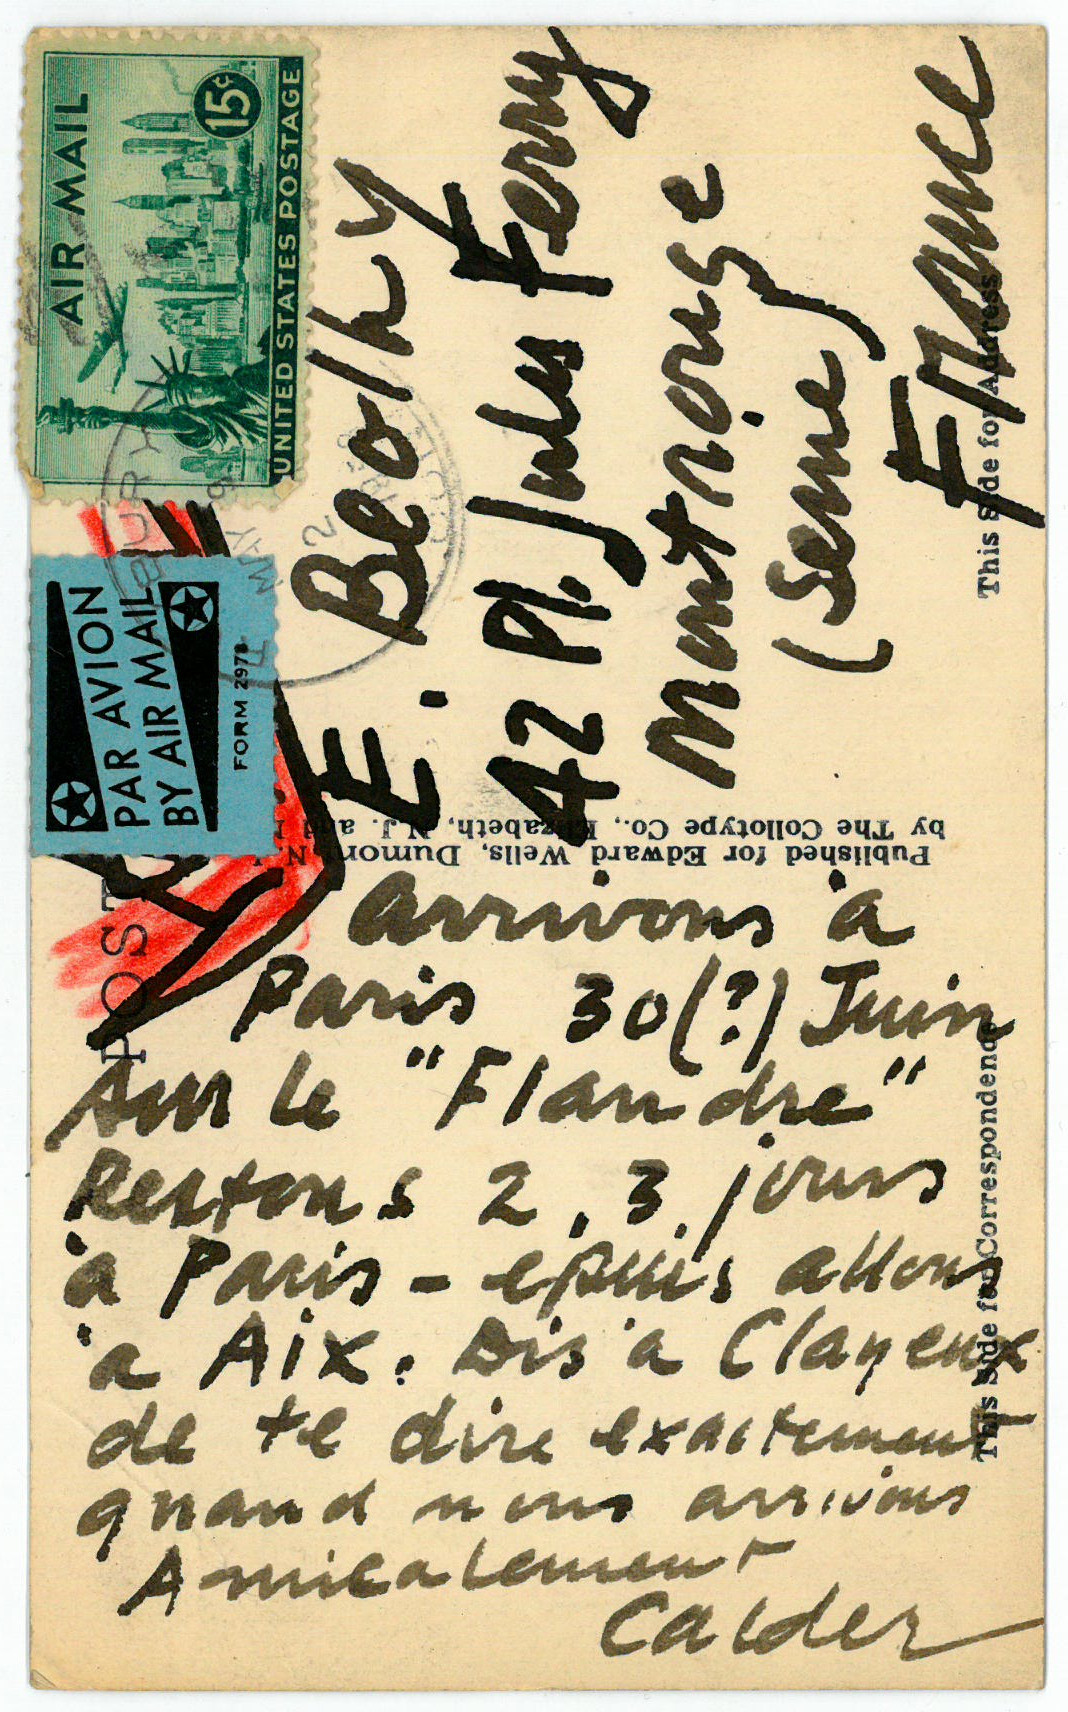 AIR MAIL
15¢
UNITED STATES POSTAGE
PAR AVION
BY AIR MAIL
FORM 2978
POST
E. Beothy
42 Pl. Jules Ferry
Montrouge
(Seine)
France
This Side for Address
Published for Edward Wells, Dumont, N.J.
by The Collotype Co., Elizabeth, N.J. and
arrivons à
Paris 30(?) Juin
sur le "Flandre"
Restons 2, 3 jours
à Paris - epuis allons
à Aix. Dis à Clayeux
de te dire exactement
quand nous arrivons
Amicalement
Calder
This Side for Correspondence